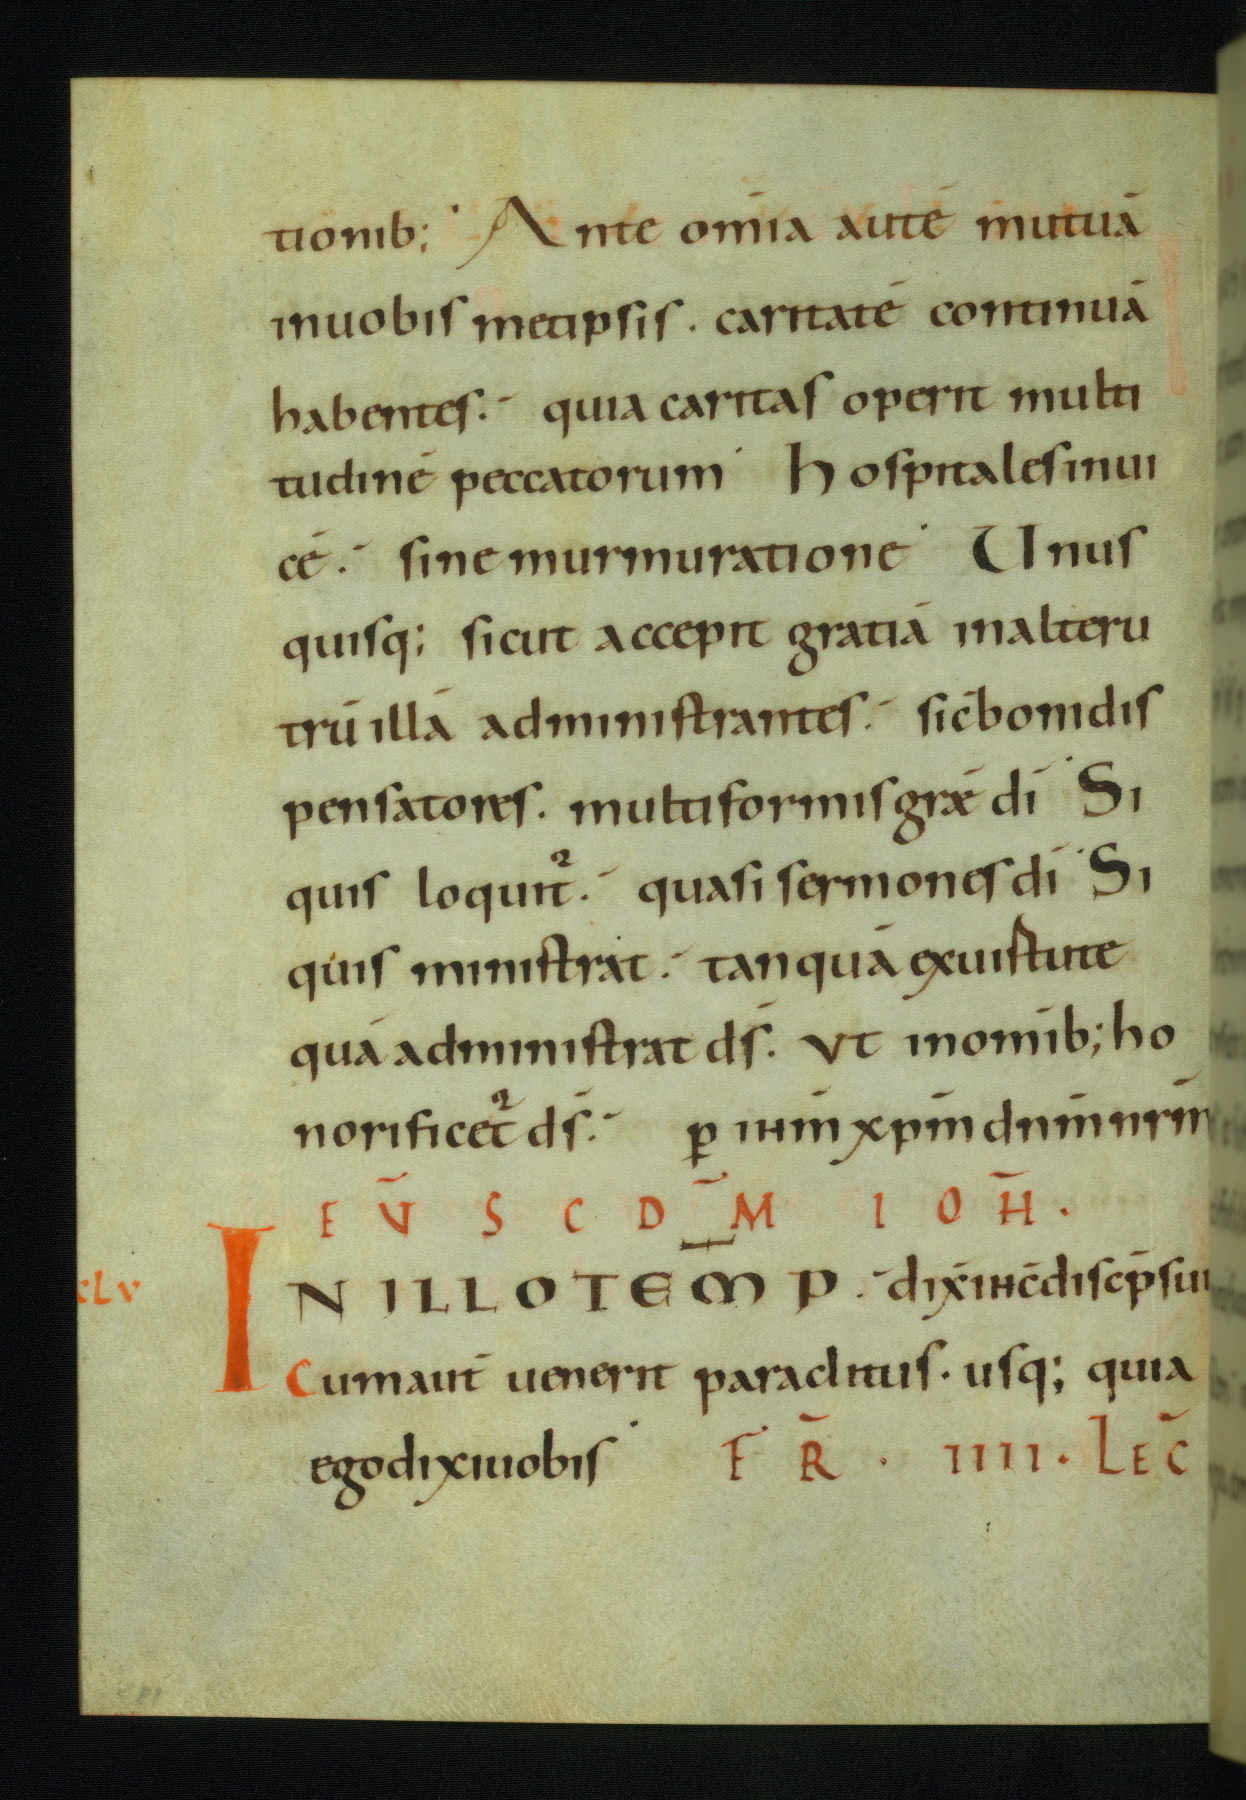 tionib; Ante om̄ia autē mutuā
inuobis metipsis. caritatē continuā
habentes. quia caritas operit multi
tudinē peccatorum hospitales inui
cē. sine murmuratione Unus
quisq; sicut accepit gratiā inalteru
trū illā administrantes. sic̄ boni dis
pensatores. multiformis grǣ dī Si
quis loquit̄. quasi sermones dī Si
quis ministrat. tanquā exuirtute
quā administrat ds̄. ut inomīb; ho
norificet̄ ds̄. ꝑ ihm̄ xpm̄ dnm̄ nrm̄
EṼ SCDM̄ IOH̄.
INILLOTEM̄P. dix̄ ihc̄ discip̄ sui
cLv
Cumaut̄ uenerit paraclitus. usq; quia
egodixiuobis FR̄. IIII. LEC̄